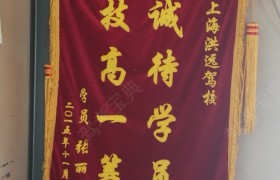 上海洪远驾校
诚待学员
技高一筹
学员 张丽
二〇一五年十一月